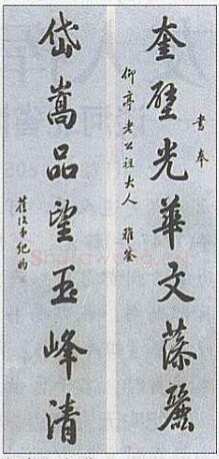 書奉
仰亭老公祖大人 雅鉴
奎壁光華文藻麗
岱嵩品望玉峰清
弟紀昀